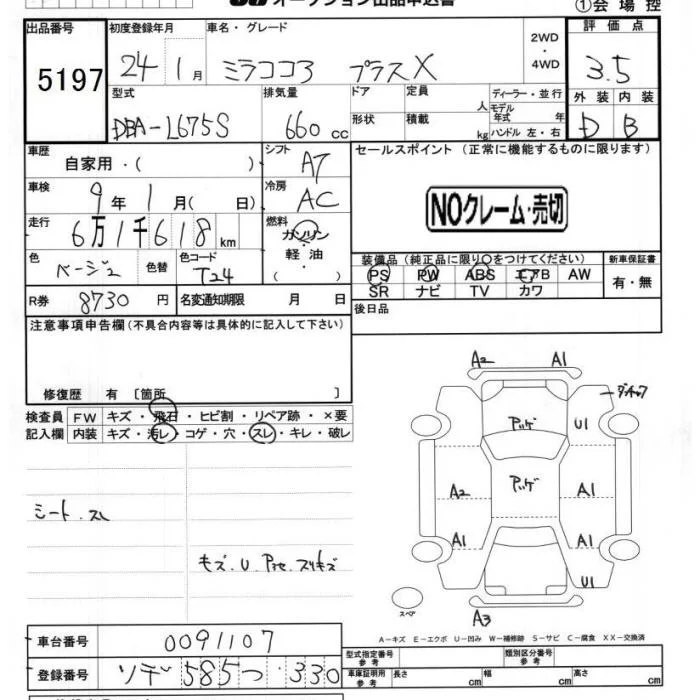 オークション出品申込書
①会場控
出品番号 初度登録年月 車名・グレード 2WD・4WD 評価点
5197 24 1月 ミラココア プラスX 3.5
型式 排気量 ドア 定員 人 ディーラー・並行 外装 内装
DBA-L675S 660cc 形状 積載 kg モデル年式 年 ハンドル 左・右 D B
車歴 自家用・( ) シフト AT セールスポイント (正常に機能するものに限ります)
車検 9年1月( 日) 冷房 AC
NOクレーム・売切
走行 6万1千618km 燃料 ガソリン・軽油・( )
色 ベージュ 色替 色コード T24
装備品 (純正品に限り○をつけてください) 新車保証書
PS PW ABS エアB AW 有・無
SR ナビ TV カワ
R券 8730円 名変通知期限 月 日
後日品
注意事項申告欄(不具合内容等は具体的に記入して下さい)
修復歴 有 〔箇所 〕
検査員 FW キズ・飛石・ヒビ割・リペア跡・×要
記入欄 内装 キズ・汚レ・コゲ・穴・スレ・キレ・破レ
シート.スレ
キズ.U.
A2 A1
U1
A2 A1
A1 A1
U1
スペア
A3
A-キズ E-エクボ U-凹み W-補修跡 S-サビ C-腐食 XX-交換済
車台番号 0091107
型式指定番号 参考 類別区分番号 参考
登録番号 585つ・330
車庫証明用 参考 長さ cm 幅 cm 高さ cm